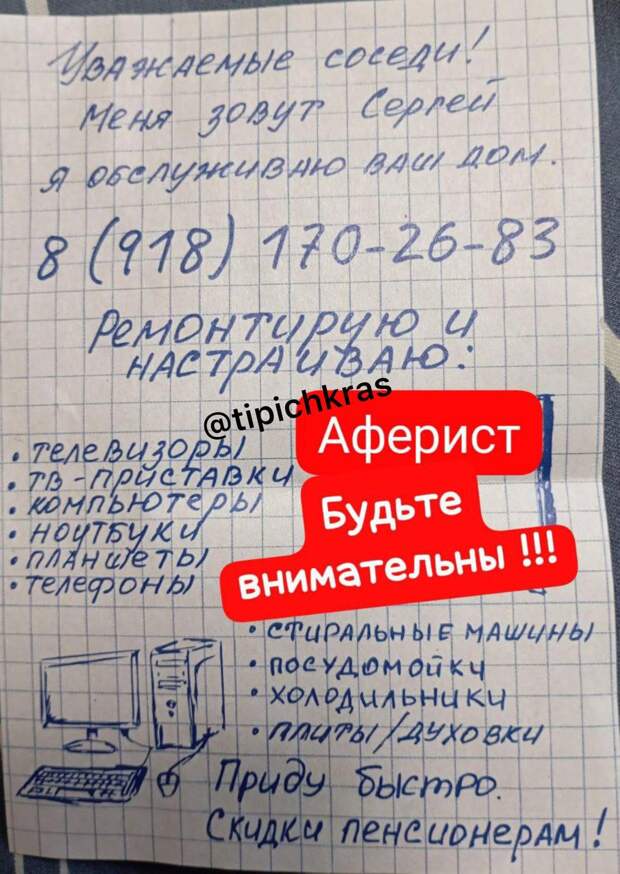 Уважаемые соседи!
Меня зовут Сергей
я обслуживаю ваш дом.
8 (918) 170-26-83
Ремонтирую и
настраиваю:
@tipichkras
Аферист
Будьте
внимательны !!!
• телевизоры
• ТВ-приставки
• компьютеры
• ноутбуки
• планшеты
• телефоны
• стиральные машины
• посудомойки
• холодильники
• плиты/духовки
Приду быстро.
Скидки пенсионерам!